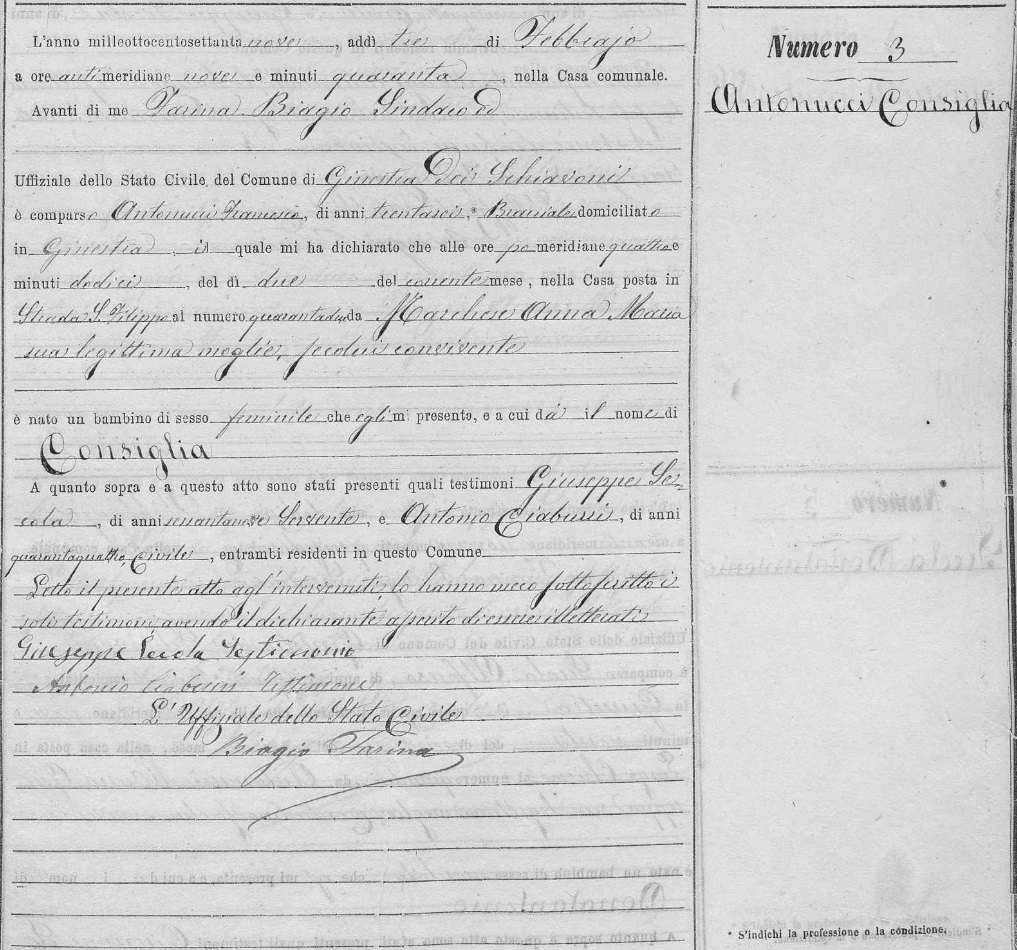 L'anno milleottocentosettanta nove, addì tre di Febbrajo
a ore antimeridiane nove e minuti quaranta, nella Casa comunale.
Avanti di me Farina Biagio Sindaco ed
Uffiziale dello Stato Civile del Comune di Ginestra Dei Schiavoni
è comparso Antonucci Francesco, di anni trentasei,* Bracciale domiciliato
in Ginestra, il quale mi ha dichiarato che alle ore pomeridiane quattro e
minuti dodici, del dì due del corrente mese, nella Casa posta in
Strada S. Filippo al numero quarantadue da Marchese Anna Maria
sua legittima moglie, secolui convivente
è nato un bambino di sesso feminile che egli mi presenta, e a cui dà il nome di
Consiglia
A quanto sopra e a questo atto sono stati presenti quali testimoni Giuseppe
, di anni Servente, e Antonio Ciaburri, di anni
quarantaquattro, Civile, entrambi residenti in questo Comune
Letto il presente atto agl'intervenuti, lo hanno meco sottoscritto i
soli testimoni avendo il dichiarante asserito di essere illetterato
Giuseppe Testimonio
Antonio Ciaburri Testimone
L'Uffiziale dello Stato Civile
Biagio Farina
Numero 3
Antonucci Consiglia
* S'indichi la professione o la condizione.